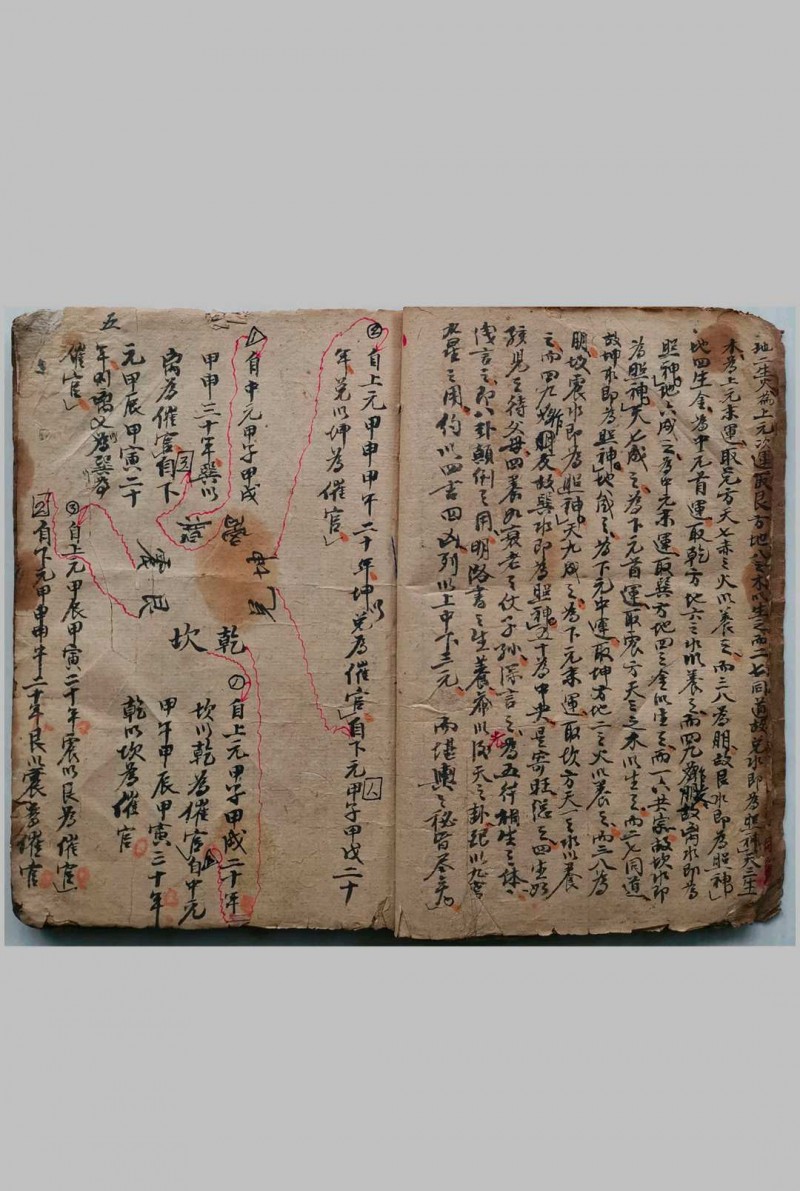 地二生火為上元次運取艮方地八之木以生之而二七同道故兌水即為照神天三生
木為上元末運取兌方天七赤之火以養之而三八為朋故艮水即為照神
地四生金為中元首運取乾方地六之水以養之而四九為朋故离水即為
照神地六成之為中元末運取巽方地四之金以生之而一六共宗故坎水即
為照神天七成之為下元首運取震方天三之木以生之而二七同道
故坤水即為照神地成之為下元中運取坤方地二之火以養之而三八為
朋故震水即為照神天九成之為下元末運取坎方天一之水以養
之而四九為朋友故巽水即為照神五十為中央是寄旺從之四生如
孩兒之待父母四養如衰老之仗子孫深言之為五行相生之体
淺言之即八卦顛倒之用明洛書之生養布以後天之卦配以九宮
五星之用約以四吉四凶列以上中下三元而堪輿之秘旨尽矣
自上元甲申甲午二十年坤以兌為催官自下元甲子甲戌二十
年兌以坤為催官
自中元甲子甲戌
甲申三十年巽以
离為催官自下
元甲辰甲寅二十
年則离又為巽
催官
五
巽
坤
兌
震
艮
乾
坎
自上元甲子甲戌二十年
坎以乾為催官自中元
甲午甲辰甲寅三十年
乾以坎為催官
③自上元甲辰甲寅二十年震以艮為催官
自下元甲申甲午二十年艮以震為催官